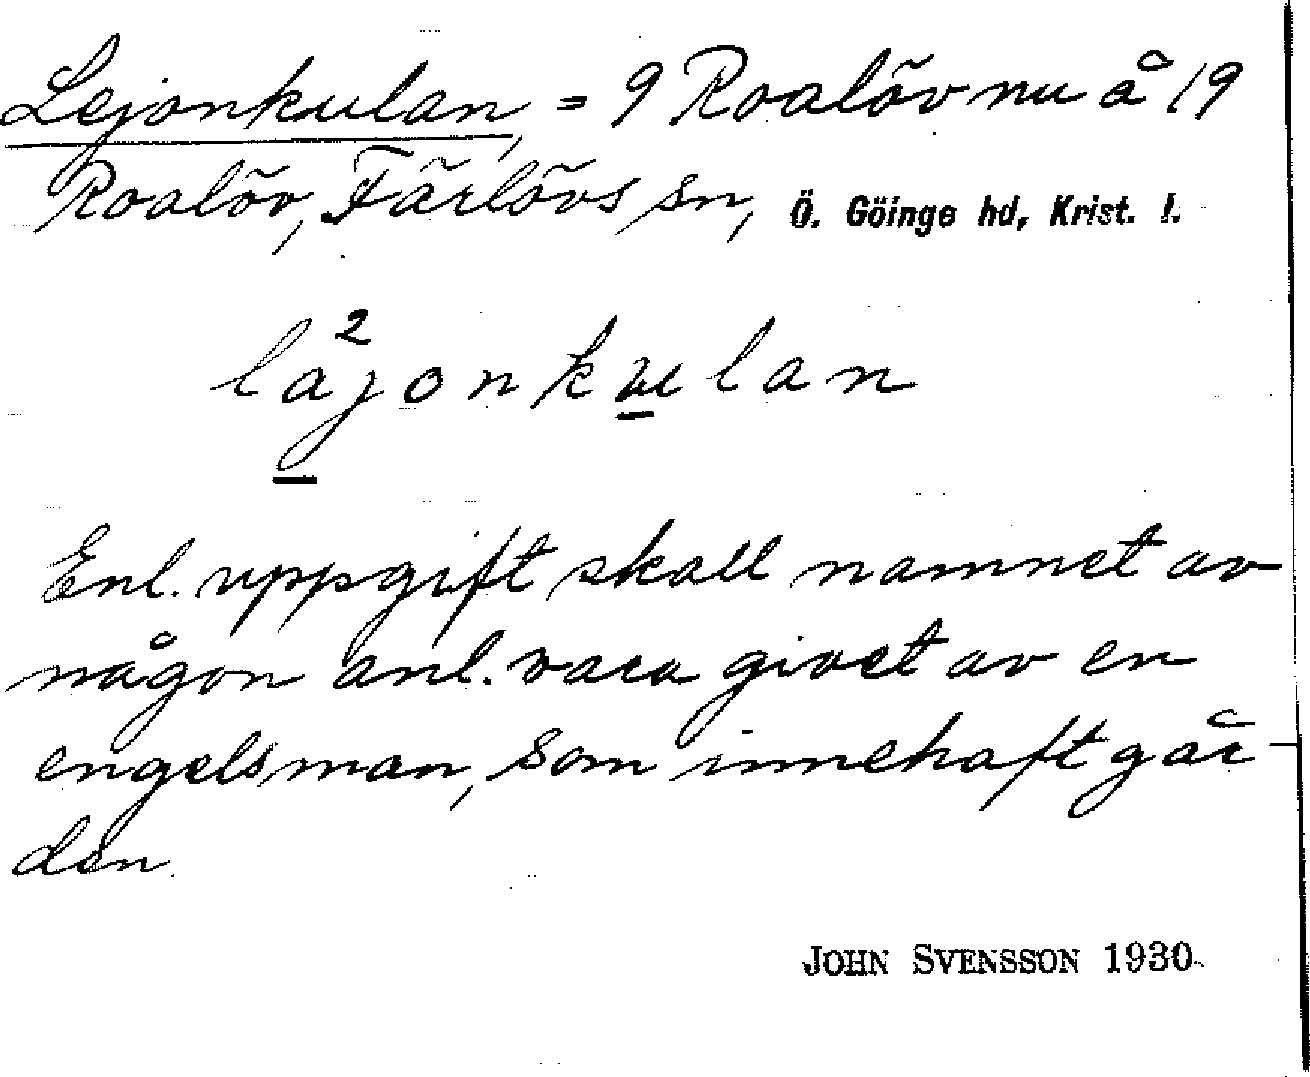 Lejonkulan, = 9 Roalöv nu å 19
Roalöv, Färlövs sn, Ö. Göinge hd, Krist. l.
2
lajonkulan
Enl. uppgift skall namnet av
någon anl. vara givet av en
engelsman, som innehaft går
den.
JOHN SVENSSON 1930.